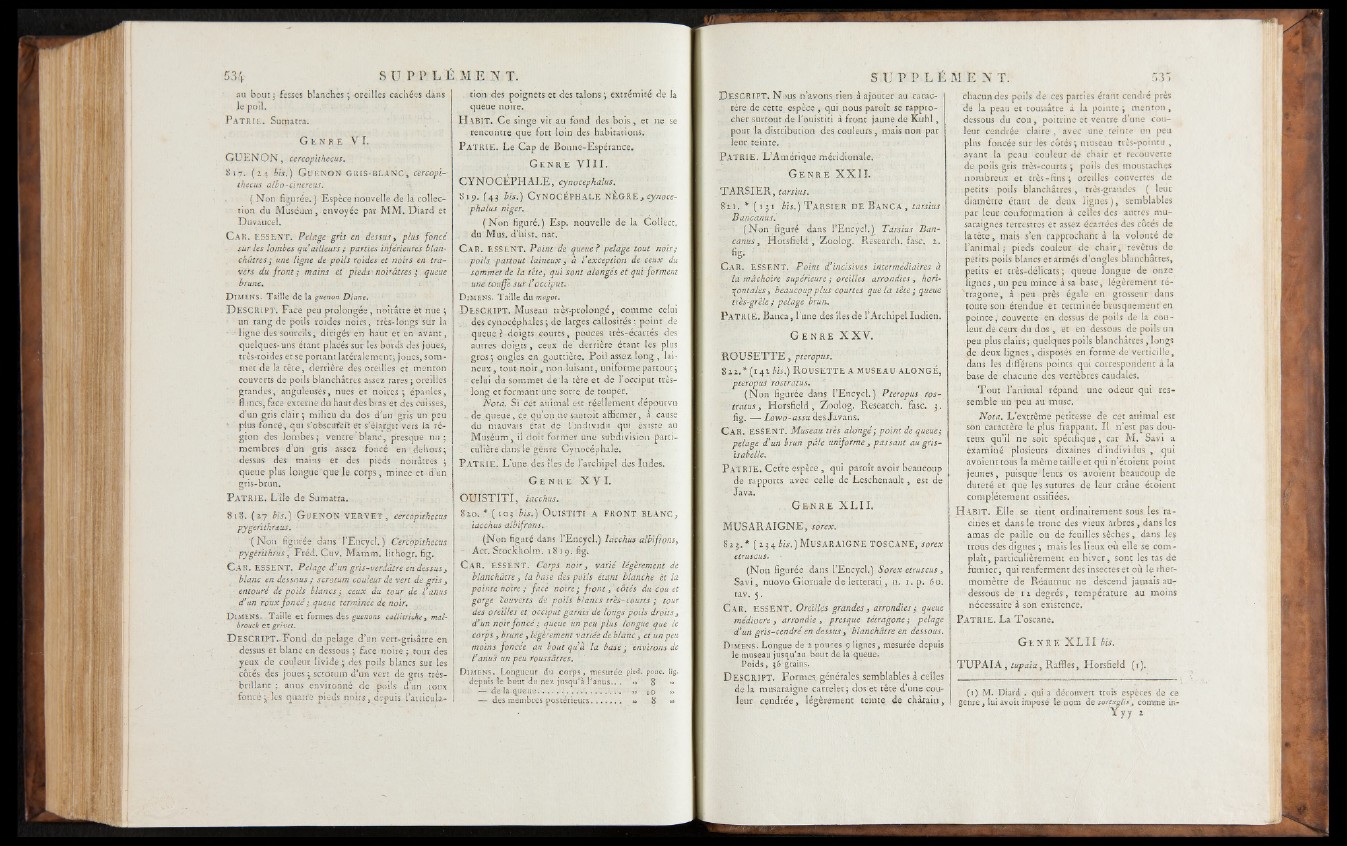 534
SUPPLÉMENT.
au bout ; fesses blanches ; oreilles cachées dans
le poil.
PATRIE. Sumatra.
GENRE VI.
GUENON, cercopithecus.
817. (24 bis.) GUENON GRIS-BLANC, cercopi-
thecus albo-cinereus.
(Non figurée.) Espèce nouvelle de la collec-
tion du Muséum, envoyée par MM. Diard et
Duvaucel.
CAR. ESSENT. Pelage gris en dessus, plus foncé
sur les lombes qu'ailleurs ; parties inférieures blan-
châtres ; une ligne de poils roides et noirs en tra-
vers du front ; mains et pieds noirâtres ; queue
brune.
DIMENS. Taille de la guenon Diane.
DESCRIPT. Face peu prolongée, noirâtre et nue ;
un rang de poils roides noirs, très-longs sur la
ligne des sourcils, dirigés en haut et en avant,
quelques-uns étant placés sur les bords des joues,
très-roides et se portant latéralement ; joues, som-
met de la tête, derrière des oreilles et menton
couverts de poils blanchâtres assez rares ; oreilles
grandes, anguleuses, nues et noires ; épaules,
flancs, face externe du haut des bras et des cuisses,
d'un gris clair ; milieu du dos d'un gris un peu
plus foncé, qui s'obscurcit et s'élargit vers la ré-
gion des lombes ; ventre blanc, presque nu ;
membres d'un gris assez foncé en dehors ;
dessus des mains et des pieds noirâtres ;
queue plus longue que le corps, mince et d'un
gris-brun.
PATRIE. L'île de Sumatra.
818. (27 bis.) GUENON VERVET, cercopithecus
pygerithræus.
(Non figurée dans l'Encycl.) Cercopithecus
pygerithrus, Fréd. Cuv. Mamm. lithogr. fig.
CAR. ESSENT. Pelage d'un gris-verdâtre en dessus,
blanc en dessous ; scrotum couleur de vert de gris,
entouré de poils blancs ; ceux du tour de l'anus
d'un roux foncé ; queue terminée de noir.
DIMENS. Taille et formes des guenons callitriche, mal-
brouck et grivet.
DESCRIPT. Fond du pelage d'un vert-grisâtre en
dessus et blanc en dessous ; face noire ; tour des
yeux de couleur livide ; des poils blancs sur les
côtés des joues ; scrotum d'un vert de gris très-
brillant ; anus environné de poils d'un roux
foncé ; les quatre pieds noirs, depuis l'articula-
tion des poignets et des talons ; extrémité de la
queue noire.
HABIT. Ce singe vit au fond des bois, et ne se
rencontre que fort loin des habitations.
PATRIE. Le Cap de Bonne-Espérance.
GENRE VIII.
CYNOCÉPHALE, cynocephalus.
819. (43 bis.) CYNOCÉPHALE NÈGRE, cynoce-
phalus niger.
(Non figuré.) Esp. nouvelle de la Collect.
du Mus. d'hist. nat.
CAR. ESSENT. Point de queue ? pelage tout noir ;
poils partout laineux, à l'exception de ceux du
sommet de la tête, qui sont alongés et qui forment
une touffe sur l'occiput.
DIMENS. Taille du magot.
DESCRIPT. Museau très-prolongé, comme celui
des cynocéphales ; de larges callosités ; point de
queue ? doigts courts, pouces très-écartés des
autres doigts, ceux de derrière étant les plus
gros ; ongles en gouttière. Poil assez long, lai-
neux, tout noir, non luisant, uniforme partout ;
celui du sommet de la tête et de l'occiput très-
long et formant une sorte de toupet.
Nota. Si cet animal est réellement dépourvu
de queue, ce qu'on ne sauroit affirmer, à cause
du mauvais état de l'individu qui existe au
Muséum, il doit former une subdivision parti-
culière dans le genre Cynocéphale.
PATRIE. L'une des îles de l'archipel des Indes.
GENRE XVI.
OUISTITI, iacchus.
820. * (103 bis.) OUISTITI A FRONT BLANC,
iacchus albifrons.
(Non figuré dans l'Encycl.) Iacchus albifrons,
Act. Stockholm. 1819. fig.
CAR. ESSENT. Corps noir, varié légèrement de
blanchâtre, la base des poils étant blanche et la
pointe noire ; face noire ; front, côtés du cou et
gorge couverts de poils blancs très-courts ; tour
des oreilles et occiput garnis de longs poils droits,
d'un noir foncé ; queue un peu plus longue que le
corps, brune, légèrement variée de blanc, et un peu
moins foncée au bout qu'à la base ; environs de
l'anus un peu roussâtres.
DIMENS. Longueur du corps, mesurée pied. pouc. lig.
depuis le bout du nez jusqu'à l'anus... » 8 »
— de la queue.................. » 10 »
— des membres postérieurs....... » 8 »
SUPPLÉMENT.
535
DESCRIPT. Nous n'avons rien à ajouter au carac-
tère de cette espèce, qui nous paroît se rappro-
cher surtout de l'ouistiti à front jaune de Kuhl,
pour la distribution des couleurs, mais non par
leur teinte.
PATRIE. L'Amérique méridionale.
GENRE XXII.
TARSIER, tarsius.
821. * (131 bis.) TARSIER DE BANCA, tarsius
Bancanus.
(Non figuré dans l'Encycl.) Tarsius Ban-
canus, Horsfield, Zoolog. Research. fasc. 2.
fig.
CAR. ESSENT. Point d'incisives intermédiaires à
la mâchoire supérieure ; oreilles arrondies, hori-
zontales, beaucoup plus courtes que la tête ; queue
très-grêle ; pelage brun.
PATRIE. Banca, l'une des îles de l'Archipel Indien.
GENRE XXV.
ROUSETTE, pteropus.
822. * (142 bis.) ROUSETTE A MUSEAU ALONGÉ,
pteropus rostratus.
(Non figurée dans l'Encycl.) Pteropus ros-
tratus, Horsfield, Zoolog. Research. fasc. 3.
fig. — Lowo-assu des Javans.
CAR. ESSENT. Museau très alongé ; point de queue ;
pelage d'un brun pâle uniforme, passant au gris-
isabelle.
PATRIE. Cette espèce, qui paroît avoir beaucoup
de rapports avec celle de Leschenault, est de
Java.
GENRE XLII.
MUSARAIGNE, sorex.
823. * (234 bis.) MUSARAIGNE TOSCANE, sorex
etruscus.
(Non figurée dans l'Encycl.) Sorex etruscus,
Savi, nuovo Giornale de letterati, n. 1. p. 60.
tav. 5.
CAR. ESSENT. Oreilles grandes, arrondies ; queue
médiocre, arrondie, presque tétragone ; pelage
d'un gris-cendré en dessus, blanchâtre en dessous.
DIMENS. Longue de 2 pouces 9 lignes, mesurée depuis
le museau jusqu'au bout de la queue.
Poids, 36 grains.
DESCRIPT. Formes générales semblables à celles
de la musaraigne carrelet ; dos et tête d'une cou-
leur cendrée, légèrement teinte de châtain,
chacun des poils de ces parties étant cendré près
de la peau et roussâtre à la pointe ; menton,
dessous du cou, poitrine et ventre d'une cou-
leur cendrée claire, avec une teinte un peu
plus foncée sur les côtés ; museau très-pointu,
ayant la peau couleur de chair et recouverte
de poils gris très-courts ; poils des moustaches
nombreux et très-fins ; oreilles couvertes de
petits poils blanchâtres, très-grandes (leur
diamètre étant de deux lignes), semblables
par leur conformation à celles des autres mu-
saraignes terrestres et assez écartées des côtés de
la tête, mais s'en rapprochant à la volonté de
l'animal ; pieds couleur de chair, revêtus de
petits poils blancs et armés d'ongles blanchâtres,
petits et très-délicats ; queue longue de onze
lignes, un peu mince à sa base, légèrement té-
tragone, à peu près égale en grosseur dans
toute son étendue et terminée brusquement en
pointe, couverte en dessus de poils de la cou-
leur de ceux du dos, et en dessous de poils un
peu plus clairs ; quelques poils blanchâtres, longs
de deux lignes, disposés en forme de verticille,
dans les différens points qui correspondent à la
base de chacune des vertèbres caudales.
Tout l'animal répand une odeur qui res-
semble un peu au musc.
Nota. L'extrême petitesse de cet animal est
son caractère le plus frappant. Il n'est pas dou-
teux qu'il ne soit spécifique, car M. Savi a
examiné plusieurs dixaines d'individus, qui
avoient tous la même taille et qui n'étoient point
jeunes, puisque leurs os avoient beaucoup de
dureté et que les sutures de leur crâne étoient
complétement ossifiées.
HABIT. Elle se tient ordinairement sous les ra-
cines et dans le tronc des vieux arbres, dans les
amas de paille ou de feuilles sèches, dans les
trous des digues ; mais les lieux où elle se com-
plaît, particulièrement en hiver, sont les tas de
fumier, qui renferment des insectes et où le ther-
momètre de Réaumur ne descend jamais au-
dessous de 12 degrés, température au moins
nécessaire à son existence.
PATRIE. La Toscane.
GENRE XLII bis.
TUPAIA, tupaia, Raffles, Horsfield (1).
(1) M. Diard, qui a découvert trois espèces de ce
genre, lui avoit imposé le nom de sorexglis, comme in-
Yyy 2